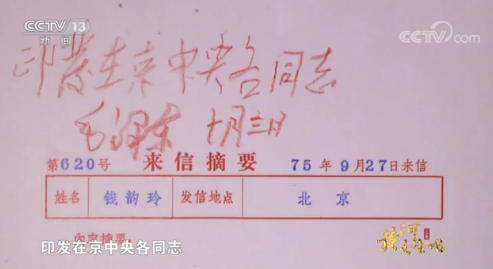 CCTV 13
新闻
CCTV.com
印发在京中央各同志
毛泽东 十月三日
第620号 来信摘要 75年9月27日来信
姓名 钱韵玲 发信地点 北京
内容摘要:
印发在京中央各同志
黄河
大合唱